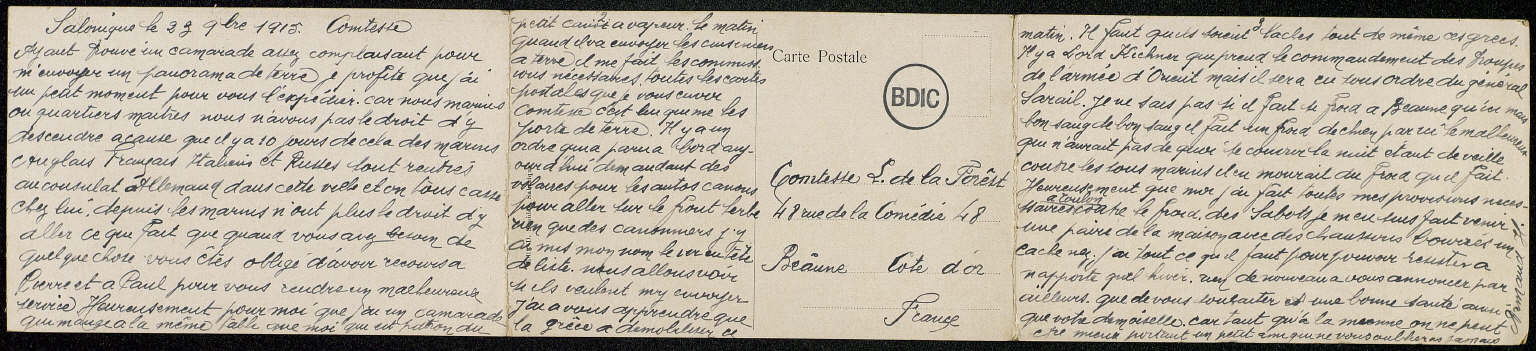 Salonique le 23 9bre 1915. Comtesse
Ayant trouvé un camarade assez complaisant pour
m'envoyer un panorama de terre, je profite que j'ai
un petit moment pour vous l'expédier. car nous marins
ou quartiers maitres nous n'avons pas le droit d'y
descendre a cause que il y a 10 jours de cela des marins
englais Français Italiens et Russes sont rentrés
au consulat d'Allemand dans cette ville et on tous cassé
chez lui, depuis les marins n'ont plus le droit d'y
aller ce que fait que quand vous avez besoin de
quelque chose vous êtes obligé d'avoir recours a
Pierre et a Paul pour vous rendre un malheureux
service Heureusement pour moi que j'ai un camarade
qui mange a la même table que moi qui est patron du
petit canot a vapeur. le matin
quand il va envoyer les cuisiniers
a terre il me fait les commiss.
ions nécessaires, toutes les cartes
postales que je vous envoie
Comtesse c'est lui qui me les
porte de terre. Il y a un
ordre qui a paru a bord auj-
ourd'hui demandant des
volaires pour les autos canons
pour aller sur le front serbe
rien que des canonniers j'y
a mis mon nom le 1er en tête
de liste. nous allons voir
si ils veulent m'y envoyer
j'ai a vous apprendre que
la grèce a démobiliser ce
Carte Postale
BDIC
Comtesse L. de la Forêst
48 rue de la Comédie 48
Beâune Côte d'or
France
matin. Il faut qu'ils soient lacles tout de même ces grecs.
Il y a Lord Kichner qui prend le commandement des troupes
de l'armée d'Orient mais il sera en sous ordre du général
Sarail. Je ne sais pas si il fait si froid a Beaune qu'ici mais
bon sang de bon sang il fait un froid de chien par ici le malheureux
qui n'aurait pas de quoi se couvrir la nuit étant de veille
contre les sous marins il en mourait du froid qu'il fait.
Heureusement que moi j'ai fait toutes mes provisions néces-
a toulon
saires contre le froid, des Sabots je me suis fait venir
une paire de la maison avec des chaussons bourrés un
cache nez, j'ai tout ce qu'il faut pour pouvoir résister a
n'apporte quel hiver. rien de nouveau a vous annoncer par
ailleurs. que de vous souhaiter une bonne santé ainsi
que votre demoiselle. car tant qu'a la mienne on ne peut
être mieux portant un petit ami qui ne vous oubliera jamais